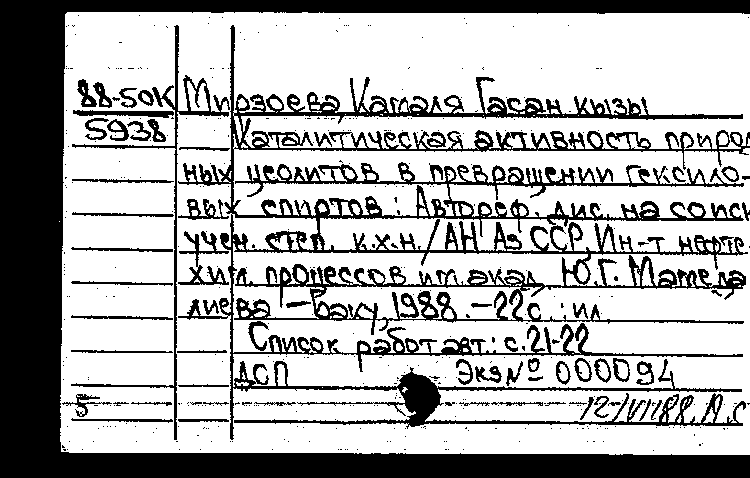 88-50К Мирзоева, Камаля Гасан кызы
5938 Каталитическая активность природ
ных цеолитов в превращении гексило-
вых спиртов : Автореф. дис. на соиск
учен. степ. к.х.н. / АН Аз ССР, Ин-т нефте
хим. процессов им. акад. Ю.Г. Мамеда
лиева - Баку, 1988. - 22с. : ил.
Список работ авт.: с. 21-22
ДСП Экз № 000094
5 12/VII88. А.С